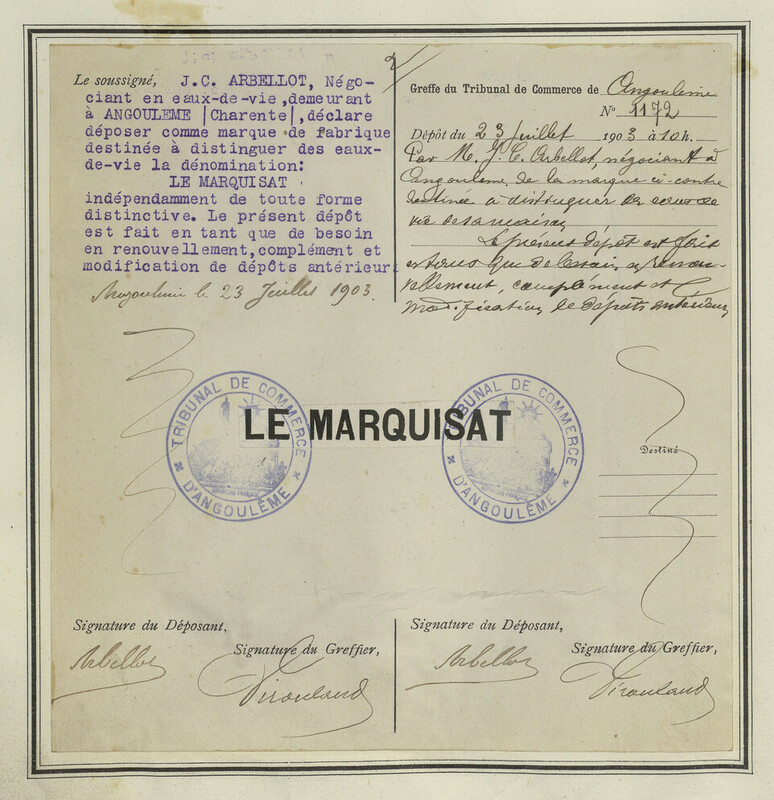 Le soussigné, J.C. ARBELLOT, Négo-
ciant en eaux-de-vie,demeurant
à ANGOULEME |Charente|,déclare
déposer comme marque de fabrique
destinée à distinguer des eaux-
de-vie la dénomination:
LE MARQUISAT
indépendamment de toute forme
distinctive. Le présent dépôt
est fait en tant que de besoin
en renouvellement,complément et
modification de dépôts antérieurs
Angoulême le 23 Juillet 1903.
Greffe du Tribunal de Commerce de Angoulême
N° 1172
Dépôt du 23 Juillet 1903 à 10h.
Par M. J. C. Arbellot, négociant à
Angoulême, de la marque ci-contre
destinée à distinguer des eaux de
vie de sa maison
Le présent dépôt est fait
en tant que de besoin, en renou-
vellement, complément et
modification de dépôts antérieurs
TRIBUNAL DE COMMERCE
D'ANGOULÊME
LE MARQUISAT
TRIBUNAL DE COMMERCE
D'ANGOULÊME
Destiné
Signature du Déposant,
Signature du Greffier,
Arbellot
Signature du Déposant,
Signature du Greffier,
Arbellot